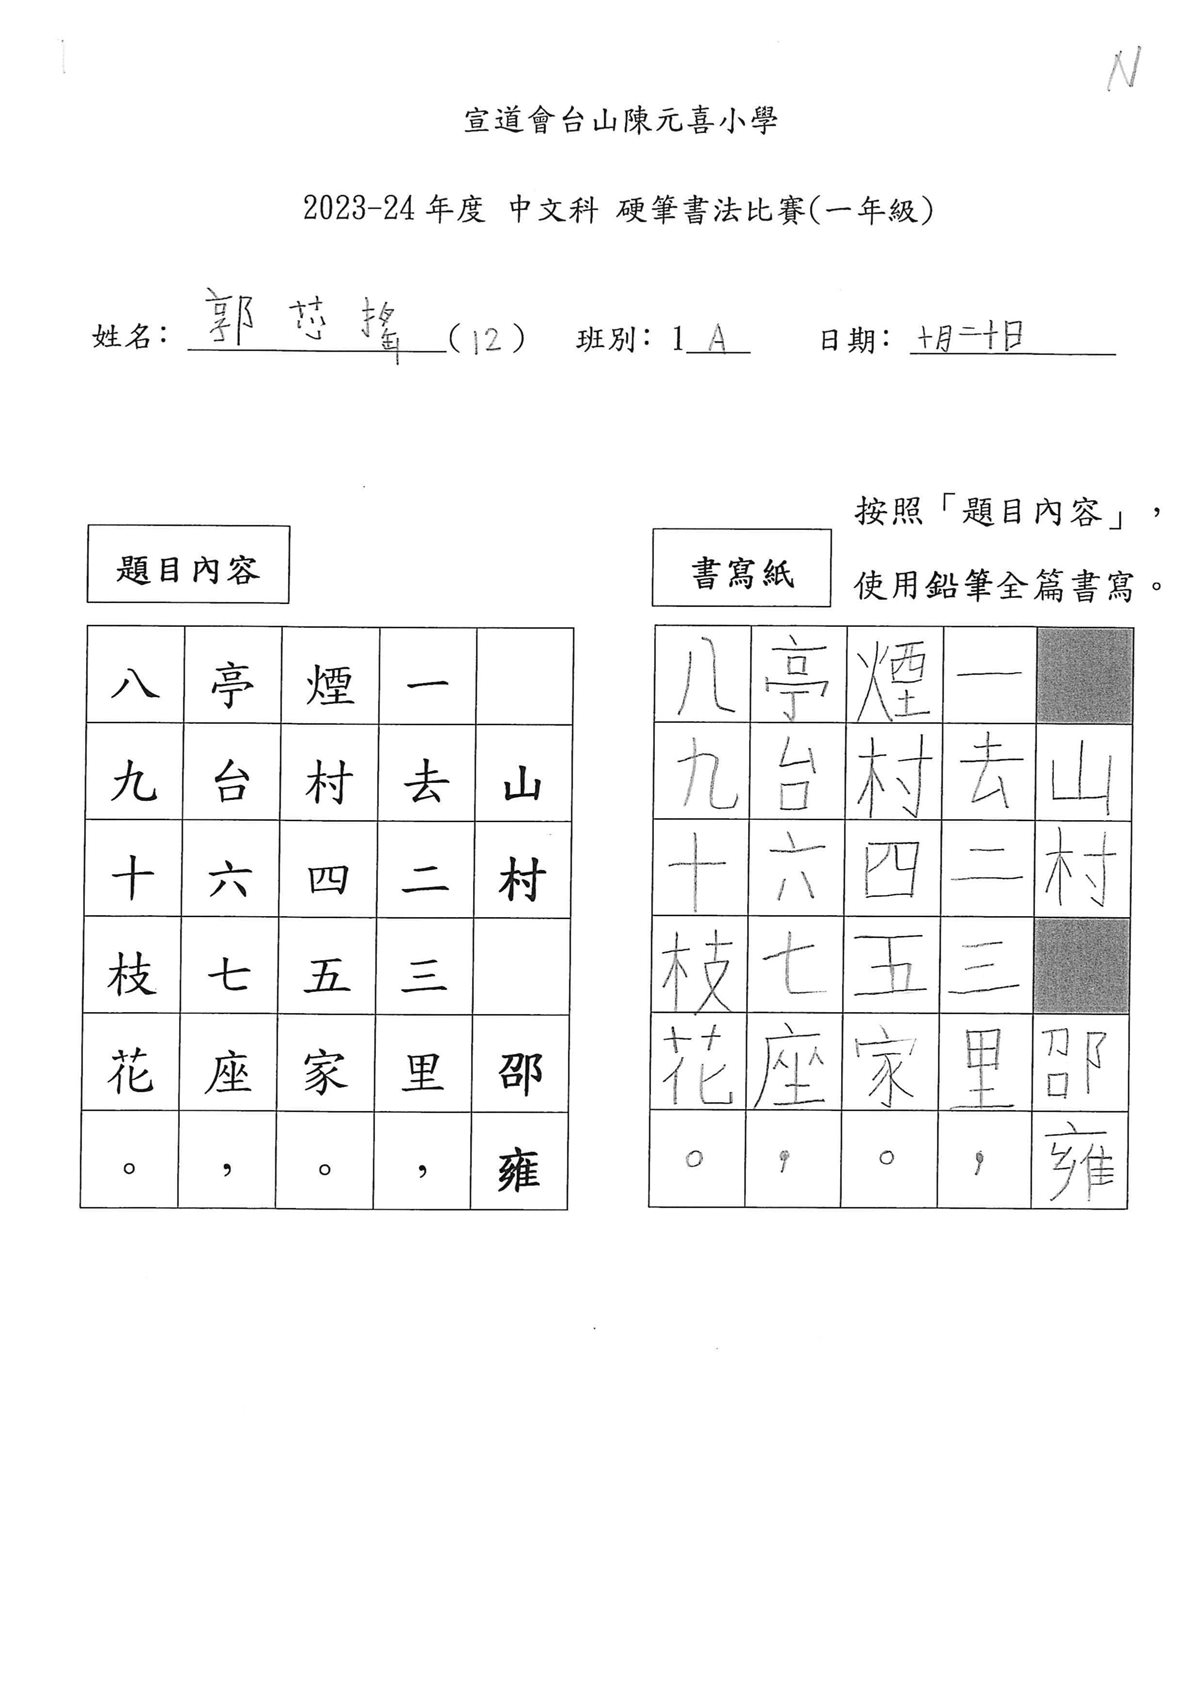 N
宣道會台山陳元喜小學
2023-24 年度 中文科 硬筆書法比賽(一年級)
姓名： 郭芯搖 (12) 班別：1 A 日期： 十月二十日
題目內容
山村 邵雍
一去二三里，
煙村四五家。
亭台六七座，
八九十枝花。
書寫紙
按照「題目內容」，
使用鉛筆全篇書寫。
山村 邵雍
一去二三里，
煙村四五家。
亭台六七座，
八九十枝花。